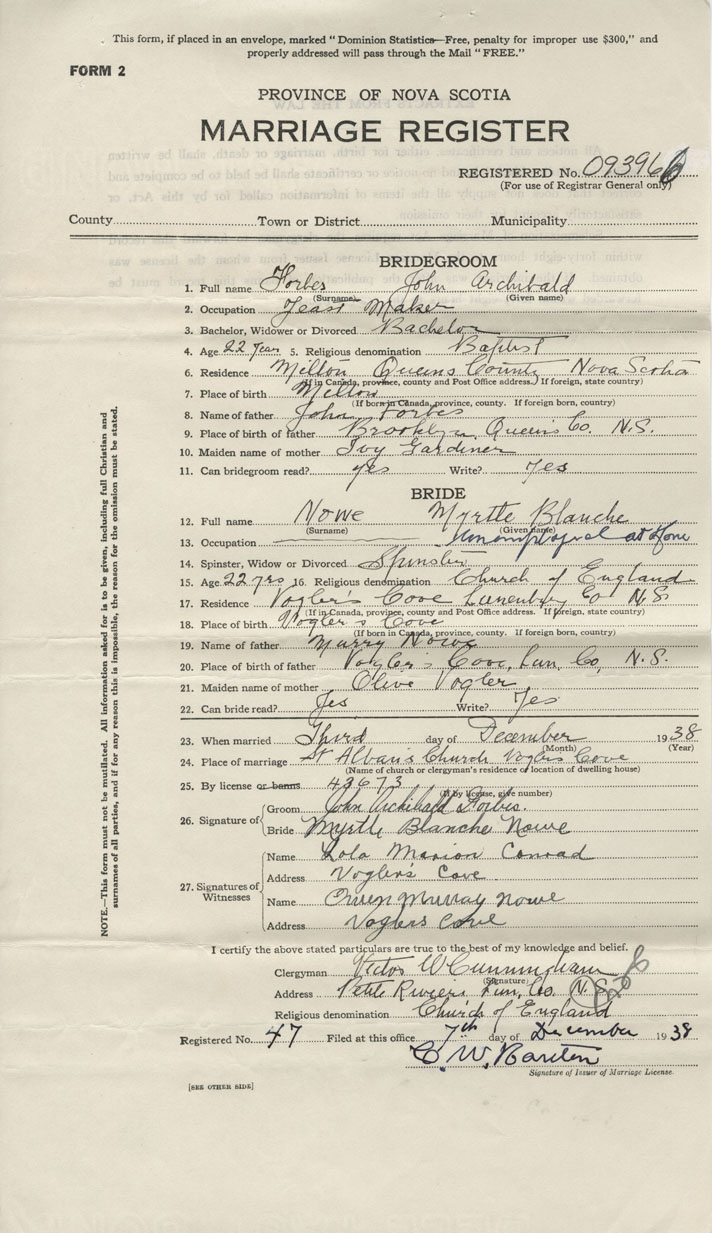 This form, if placed in an envelope, marked "Dominion Statistics—Free, penalty for improper use $300," and
properly addressed will pass through the Mail "FREE."
FORM 2
PROVINCE OF NOVA SCOTIA
MARRIAGE REGISTER
REGISTERED No. 09396
(For use of Registrar General only)
County Town or District Municipality
BRIDEGROOM
1. Full name Forbes John Archibald
(Surname) (Given name)
2. Occupation Maker
3. Bachelor, Widower or Divorced Bachelor
4. Age 22 Year 5. Religious denomination Baptist
6. Residence Milton Queens County Nova Scotia
(If in Canada, province, county and Post Office address. If foreign, state country)
7. Place of birth Milton
(If born in Canada, province, county. If foreign born, country)
8. Name of father John Forbes
9. Place of birth of father Brooklyn Queens Co. N.S.
10. Maiden name of mother Ivy Gardiner
11. Can bridegroom read? yes Write? Yes
BRIDE
12. Full name Nowe Myrtle Blanche
(Surname) (Given name)
13. Occupation unemployed at Home
14. Spinster, Widow or Divorced Spinster
15. Age 22 yrs 16. Religious denomination Church of England
17. Residence Vogler's Cove Lunenburg Co N.S
(If in Canada, province, county and Post Office address. If foreign, state country)
18. Place of birth Vogler's Cove
(If born in Canada, province, county. If foreign born, country)
19. Name of father Murry Nowe
20. Place of birth of father Vogler's Cove, Lun, Co, N.S.
21. Maiden name of mother Olive Vogler
22. Can bride read? Yes Write? Yes
23. When married Third day of December 1938
(Month) (Year)
24. Place of marriage St Alban's Church Voglers Cove
(Name of church or clergyman's residence or location of dwelling house)
25. By license or banns 43673
(If by license, give number)
26. Signature of Groom John Archibald Forbes.
Bride Myrtle Blanche Nowe
27. Signatures of Witnesses
Name Lola Marion Conrad
Address Voglers Cove
Name Owen Murray Nowe
Address Voglers Cove
I certify the above stated particulars are true to the best of my knowledge and belief.
Clergyman Victor W Cunningham
(Signature)
Address Petite Riviere Lun, Co. N.S.
Religious denomination Church of England
Registered No. 47 Filed at this office 7th day of December 1938
C. W.
Signature of Issuer of Marriage License.
[SEE OTHER SIDE]
NOTE.—This form must not be mutilated. All information asked for is to be given, including full Christian and
surnames of all parties, and if for any reason this is impossible, the reason for the omission must be stated.